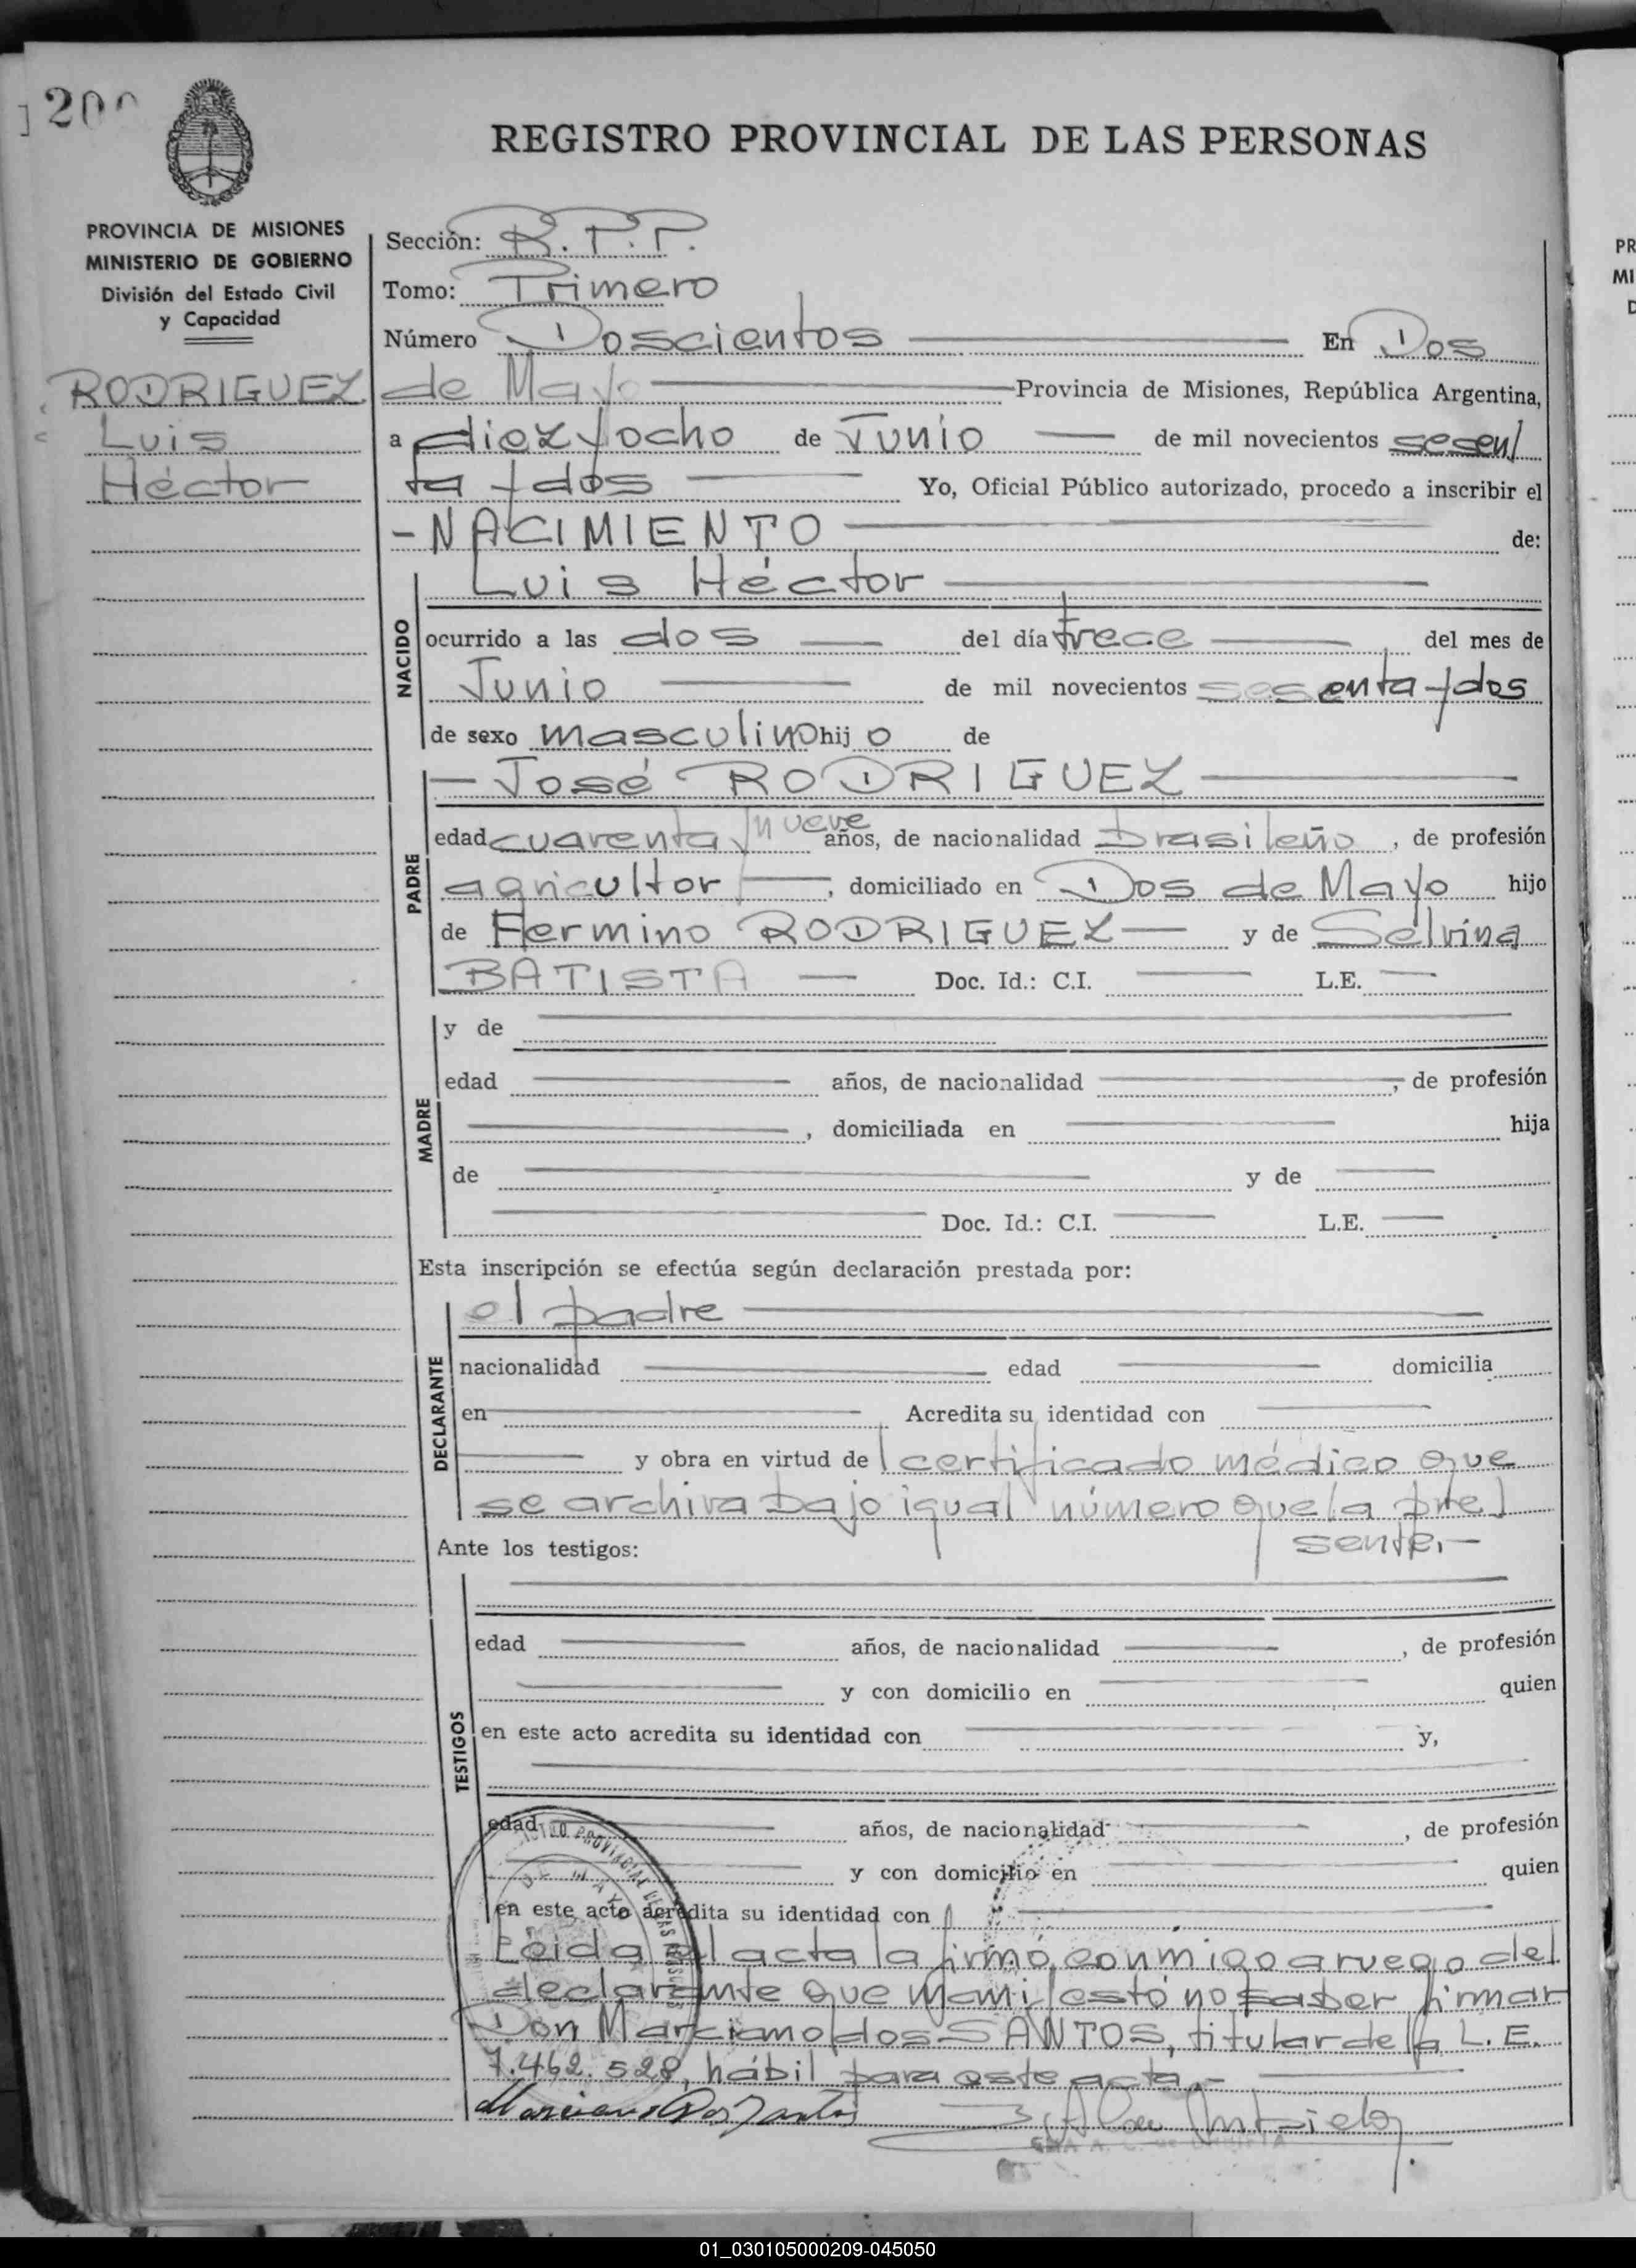 200
REGISTRO PROVINCIAL DE LAS PERSONAS
PROVINCIA DE MISIONES
MINISTERIO DE GOBIERNO
División del Estado Civil
y Capacidad
RODRIGUEZ
Luis
Héctor
Sección: R.P.P.
Tomo: Primero
Número Doscientos En Dos
de Mayo Provincia de Misiones, República Argentina,
a diez y ocho de Junio de mil novecientos sesen/
ta y dos Yo, Oficial Público autorizado, procedo a inscribir el
-NACIMIENTO de:
NACIDO
Luis Héctor
ocurrido a las dos del día trece del mes de
Junio de mil novecientos sesenta y dos
de sexo masculino hijo de
PADRE
José RODRIGUEZ
edad cuarenta y nueve años, de nacionalidad brasileño, de profesión
agricultor, domiciliado en Dos de Mayo hijo
de Fermino RODRIGUEZ y de Selvina
BATISTA Doc. Id.: C.I. L.E.
MADRE
y de
edad años, de nacionalidad , de profesión
, domiciliada en hija
de y de
Doc. Id.: C.I. L.E.
Esta inscripción se efectúa según declaración prestada por:
DECLARANTE
el padre
nacionalidad edad domicilia
en Acredita su identidad con
y obra en virtud de l certificado médico que
se archiva bajo igual número que la pre/
sente.-
Ante los testigos:
TESTIGOS
edad años, de nacionalidad , de profesión
y con domicilio en quien
en este acto acredita su identidad con y,
edad años, de nacionalidad , de profesión
y con domicilio en quien
en este acto acredita su identidad con
Leida el acta la firmó conmigo a ruego del
declarante que manifestó no saber firmar
Don Marciano dos SANTOS, titular de la L.E.
7.462.528, hábil para este acta.-
Marciano Dos Santos
PR
MI
D
01_030105000209-045050